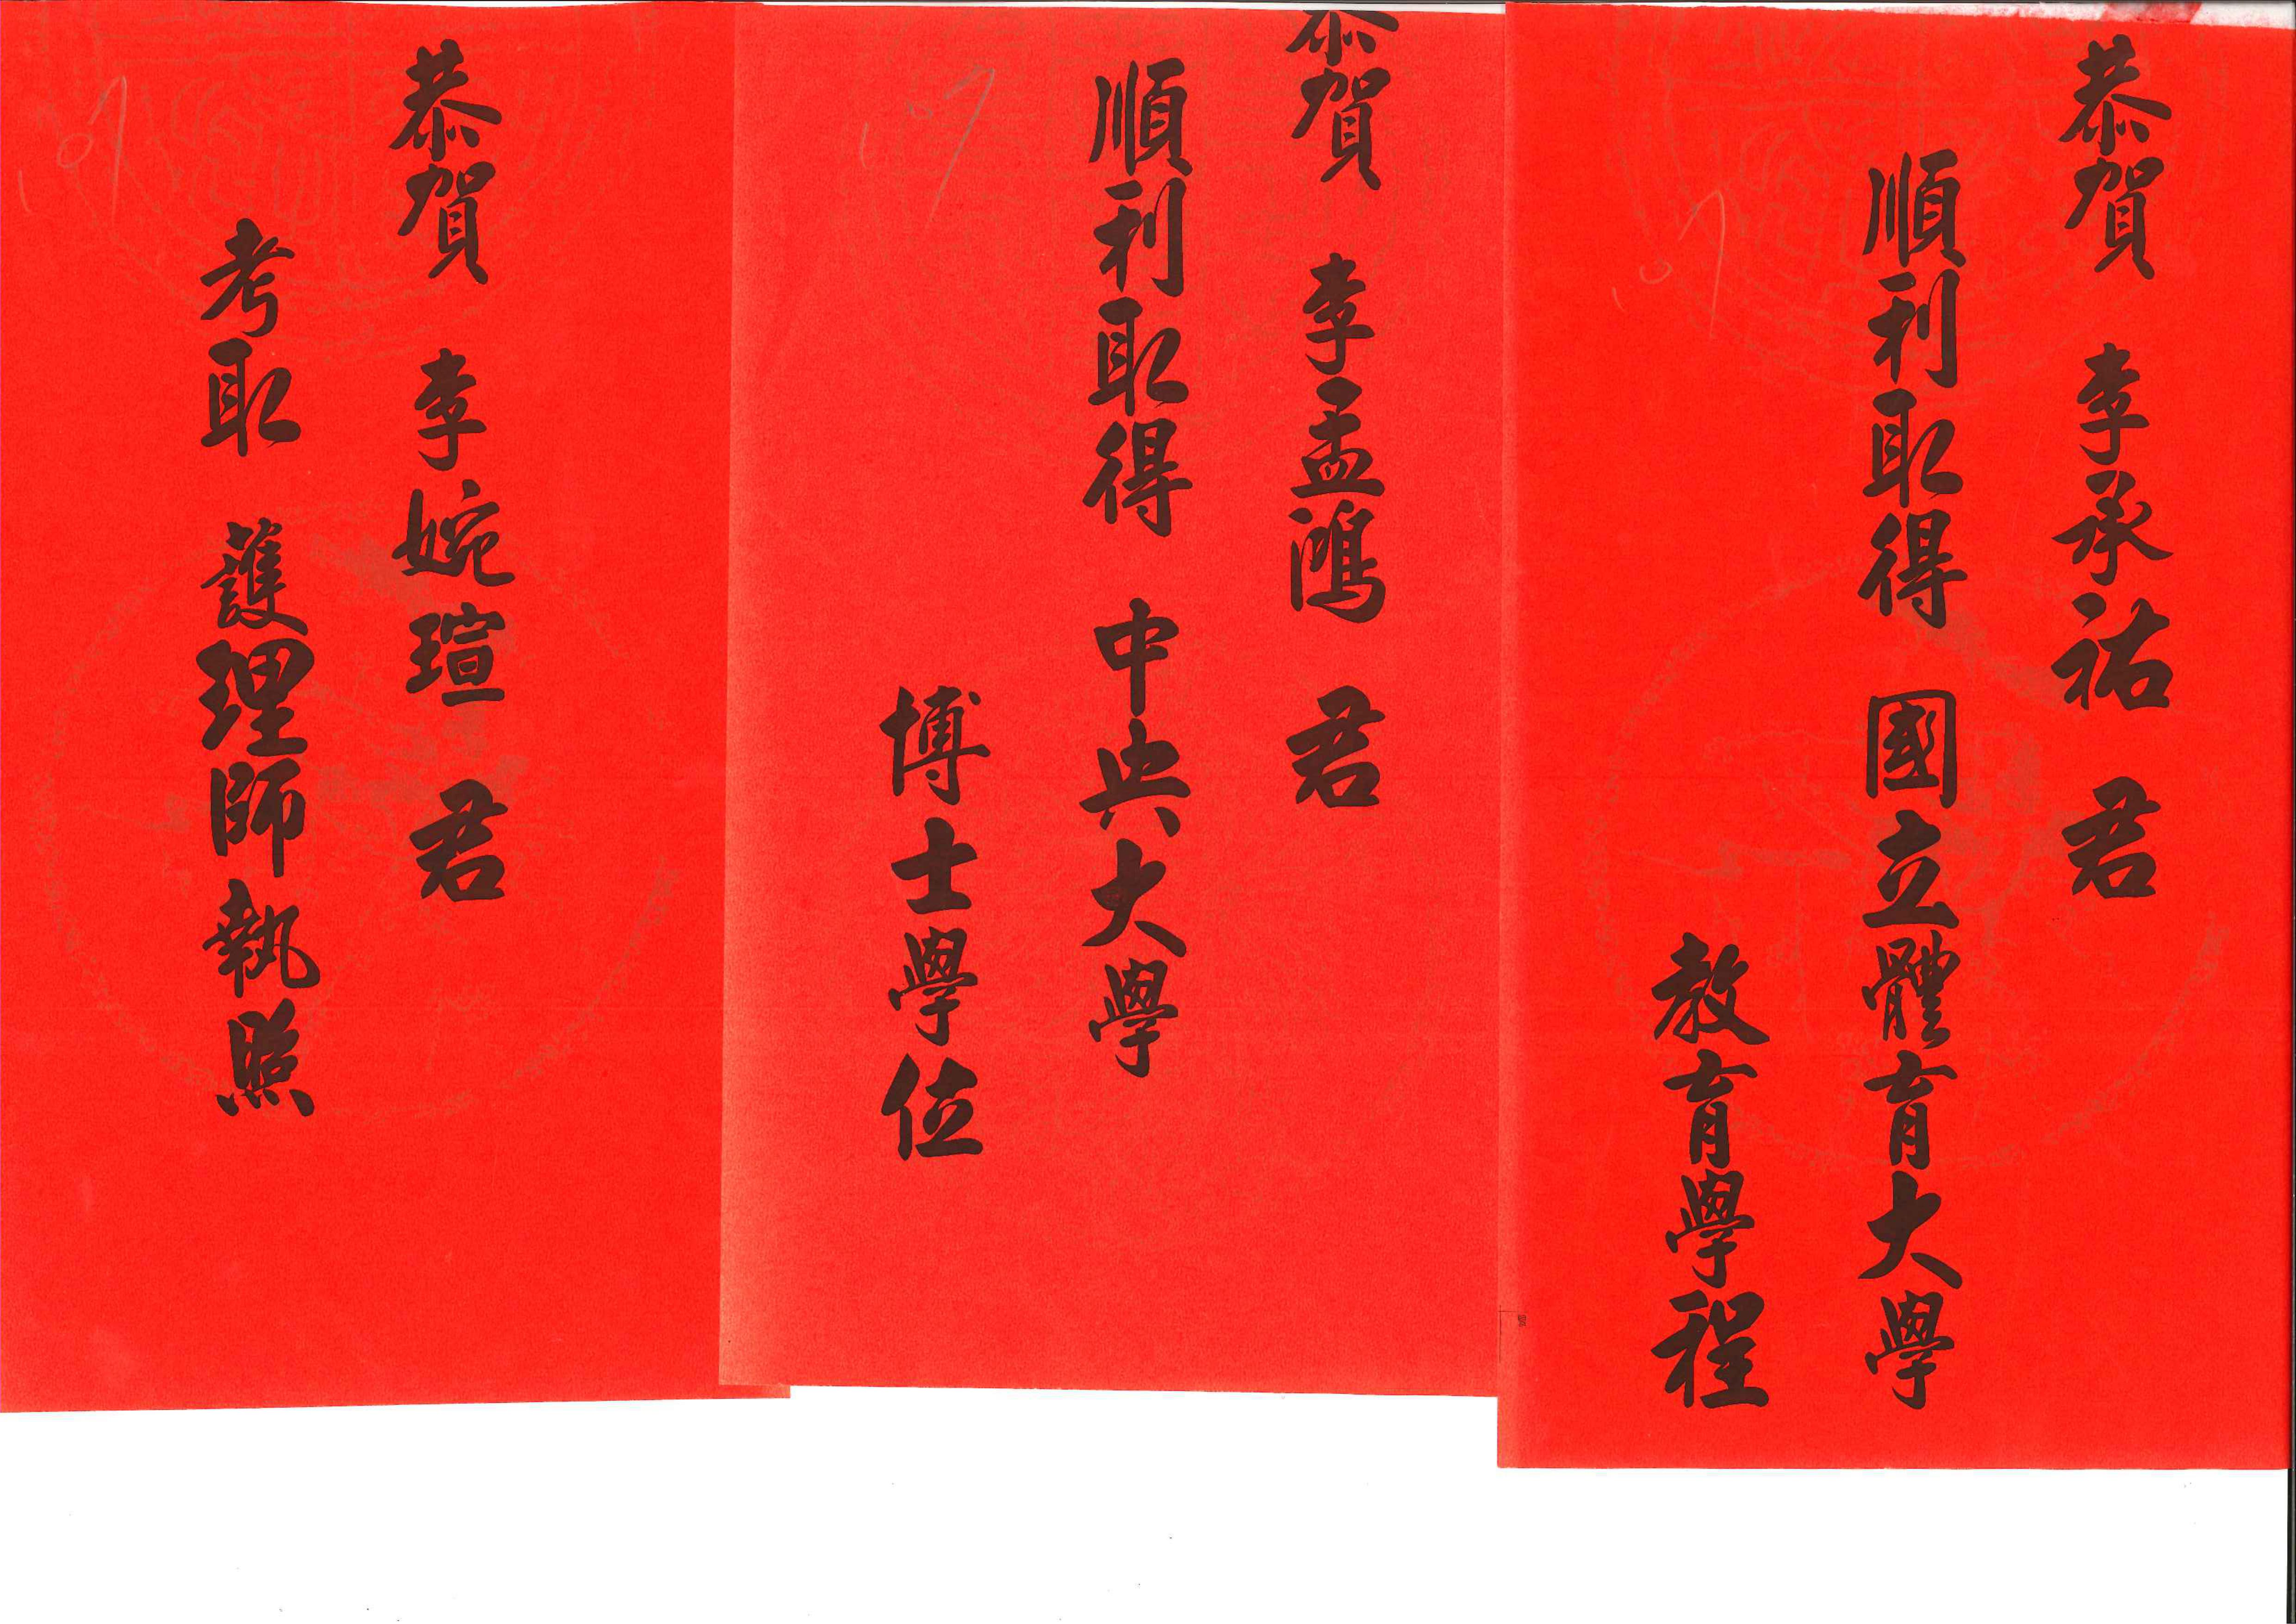 恭賀 李承祐 君
順利取得 國立體育大學
教育學程
107
恭賀 李孟鴻 君
順利取得 中央大學
博士學位
107
恭賀 李婉瑄 君
考取 護理師執照
107